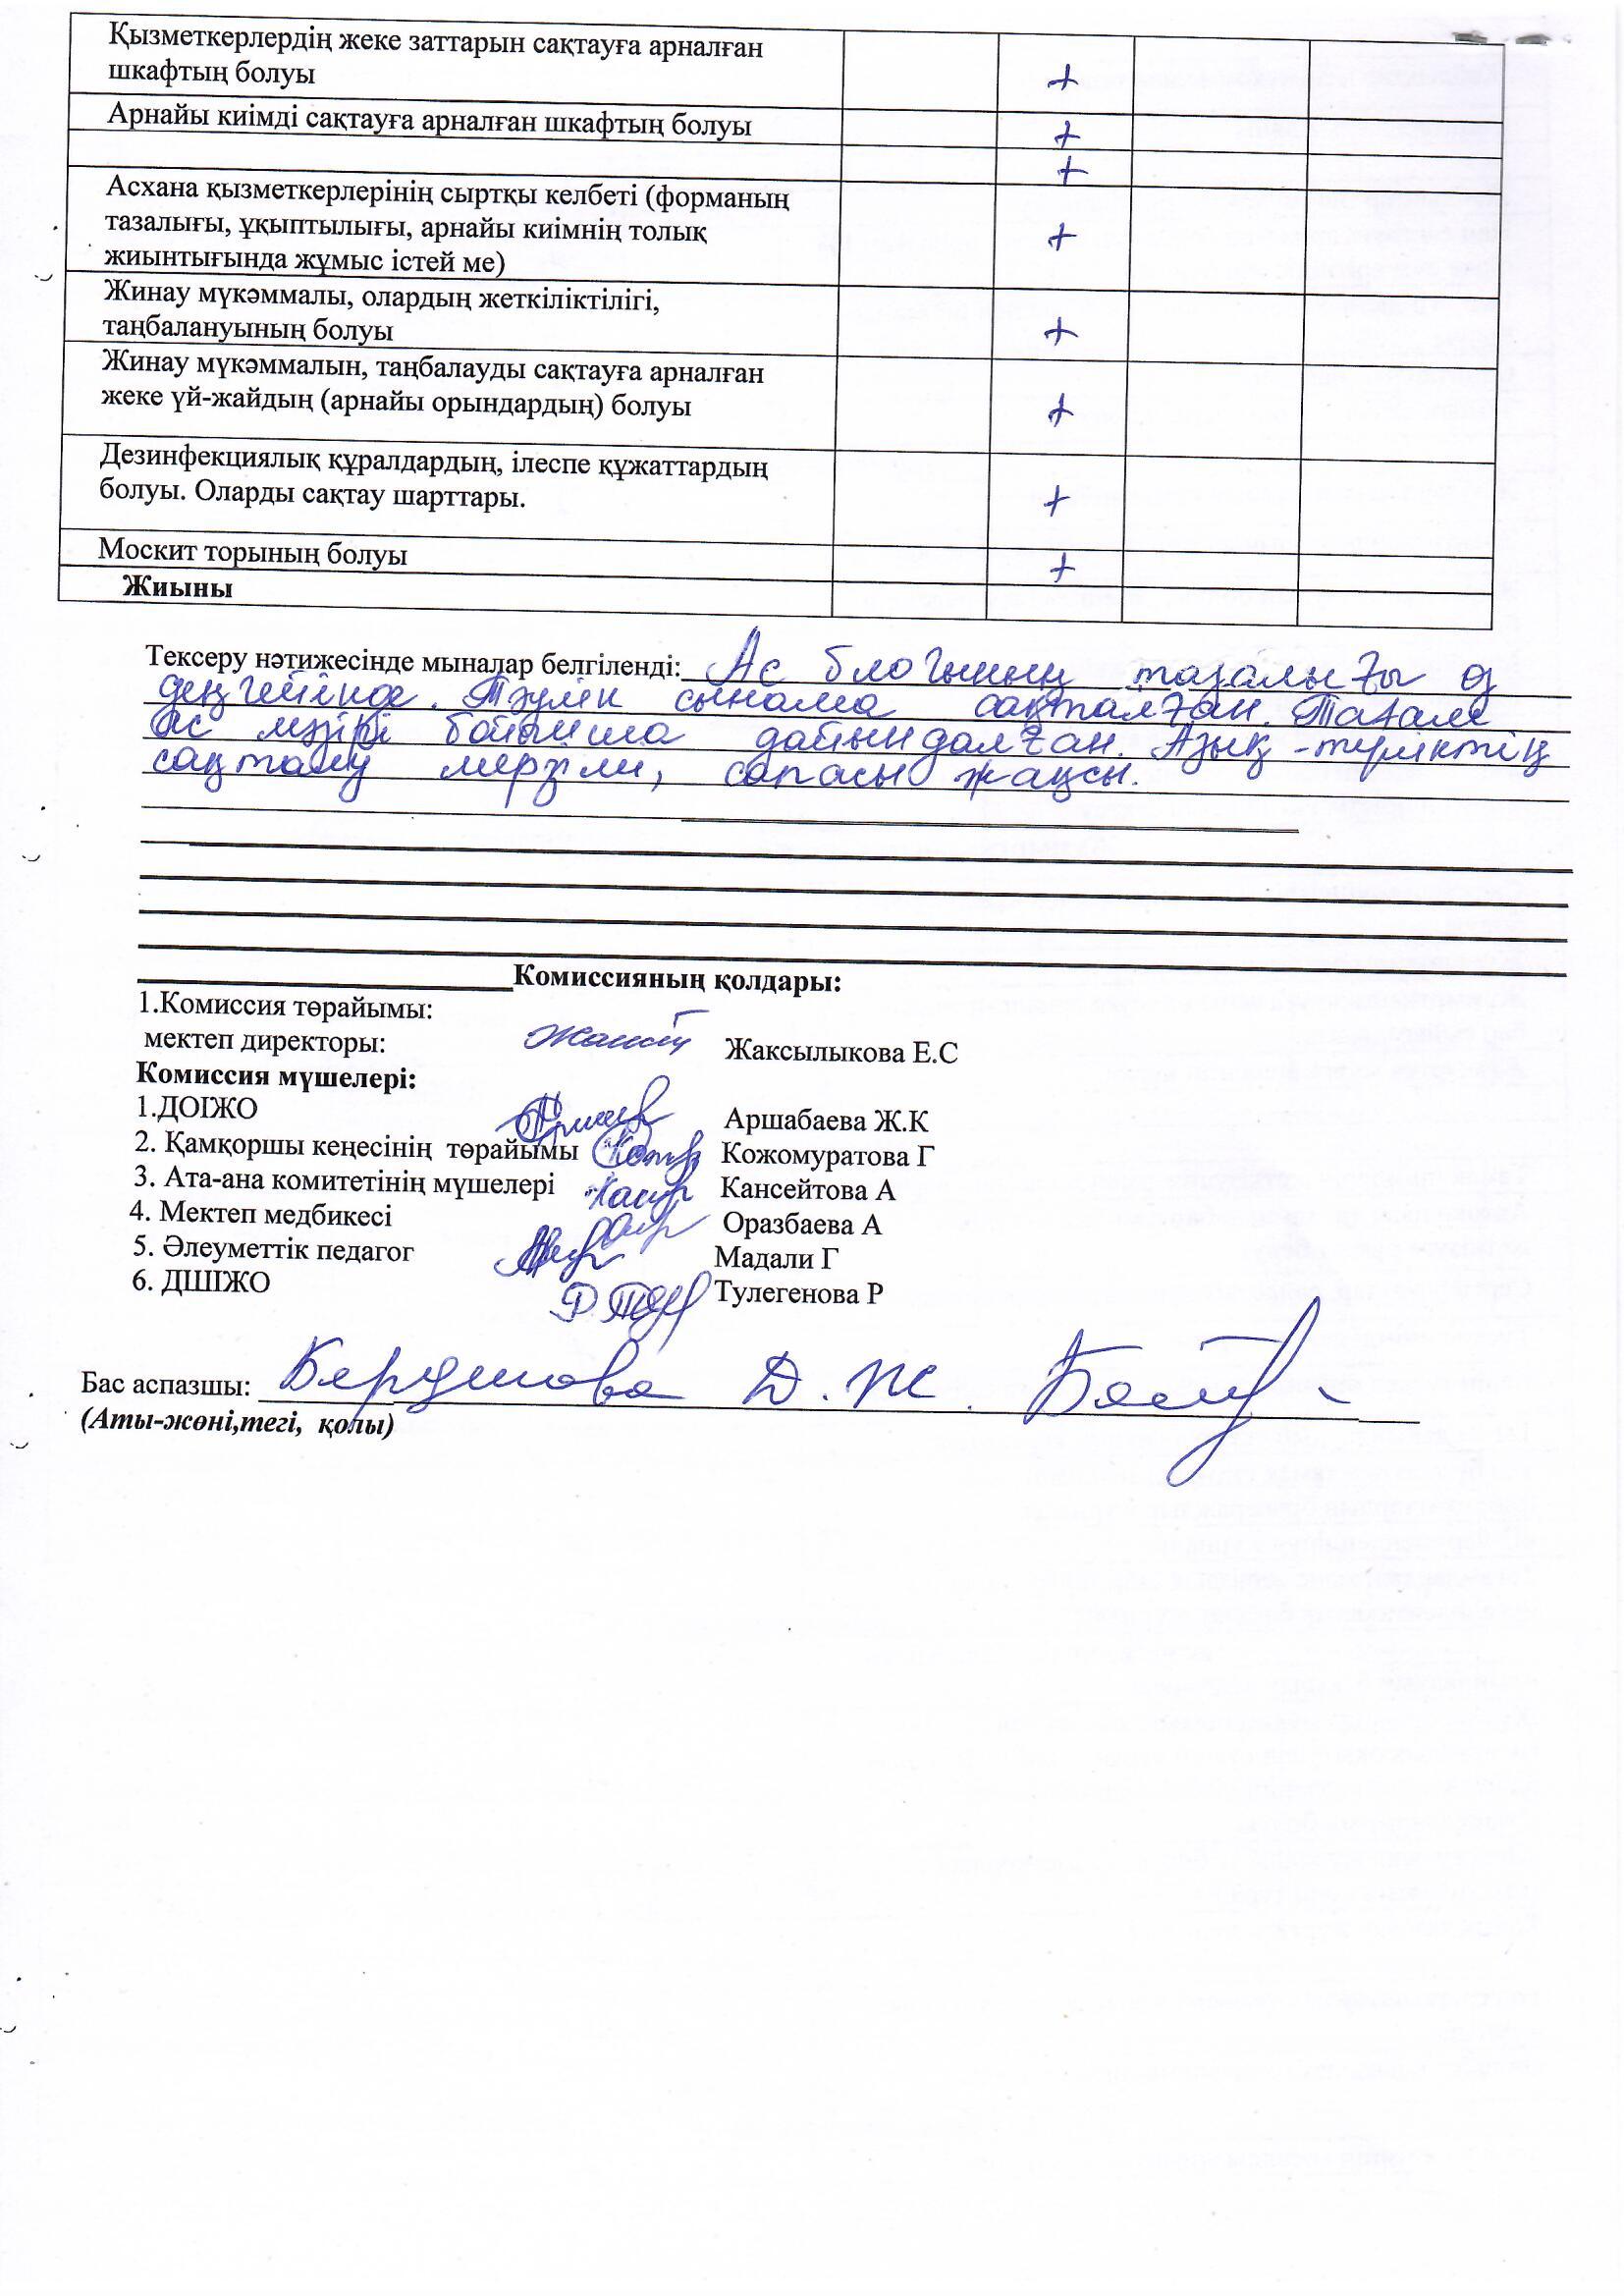 Қызметкерлердің жеке заттарын сақтауға арналған
шкафтың болуы +
Арнайы киімді сақтауға арналған шкафтың болуы +
+
Асхана қызметкерлерінің сыртқы келбеті (форманың
тазалығы, ұқыптылығы, арнайы киімнің толық +
жиынтығында жұмыс істей ме)
Жинау мүкәммалы, олардың жеткіліктілігі,
таңбалануының болуы +
Жинау мүкәммалын, таңбалауды сақтауға арналған
жеке үй-жайдың (арнайы орындардың) болуы +
Дезинфекциялық құралдардың, ілеспе құжаттардың
болуы. Оларды сақтау шарттары. +
Москит торының болуы +
Жиыны
Тексеру нәтижесінде мыналар белгіленді: Ас блогының тазалығы өз
деңгейінде. Тәулік сынама сақталған. Тағам
ас мәзірі бойынша дайындалған. Азық-түліктің
сақталу мерзімі, сапасы жақсы.
Комиссияның қолдары:
1.Комиссия төрайымы:
мектеп директоры: Жаксылыкова Е.С
Комиссия мүшелері:
1.ДОІЖО Аршабаева Ж.К
2. Қамқоршы кеңесінің төрайымы Кожомуратова Г
3. Ата-ана комитетінің мүшелері Кансейтова А
4. Мектеп медбикесі Оразбаева А
5. Әлеуметтік педагог Мадали Г
6. ДШІЖО Тулегенова Р
Бас аспазшы: Д. Ж.
(Аты-жөні,тегі, қолы)